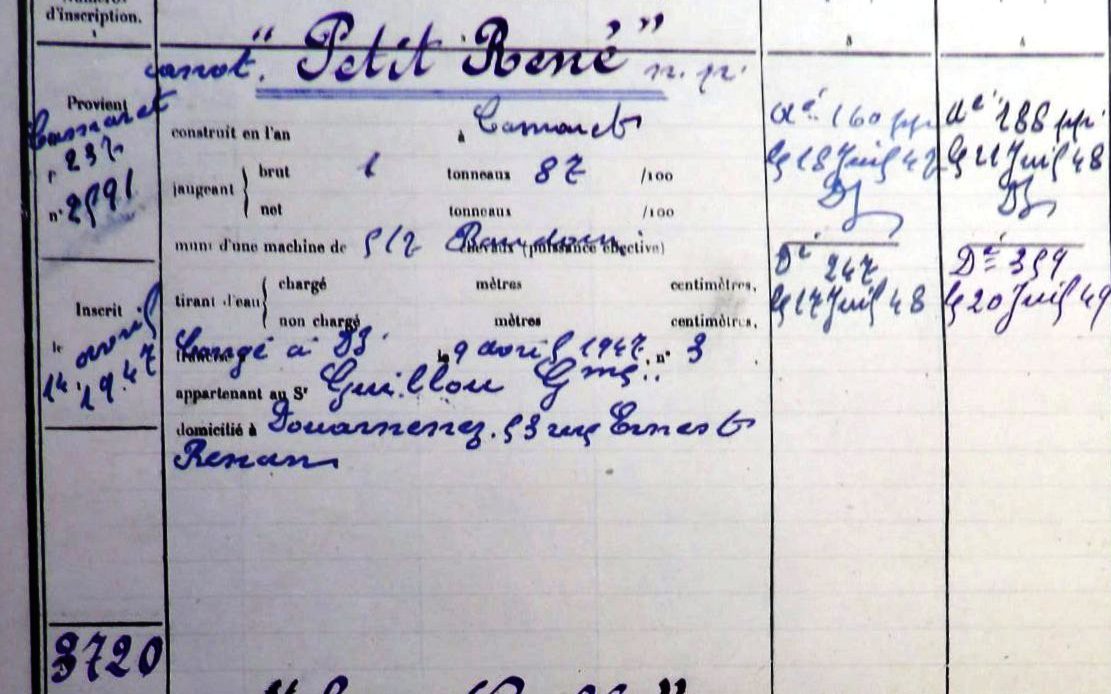 d'inscription.
canot. "Petit René" n.p.
Provient
Camaret
f° 237
n° 2591
construit en l'an à Camaret
jaugeant { brut 1 tonneaux 87 /100
net tonneaux /100
muni d'une machine de 5/7 Baudouin chevaux (puissance effective)
tirant d'eau { chargé mètres centimètres,
non chargé mètres centimètres,
Inscrit
le 14 avril
1947
Congé à Dz le 9 avril 1947 n° 3
appartenant au Sr Guillou Gme
domicilié à Douarnenez. 53 rue Ernest
Renan
3720
Dé 160 pp
le 18 Juil 47
Dz
Dé 247
le 17 Juil 48
Dé 188 pp
Dz
Dé 359
le 20 Juil 49